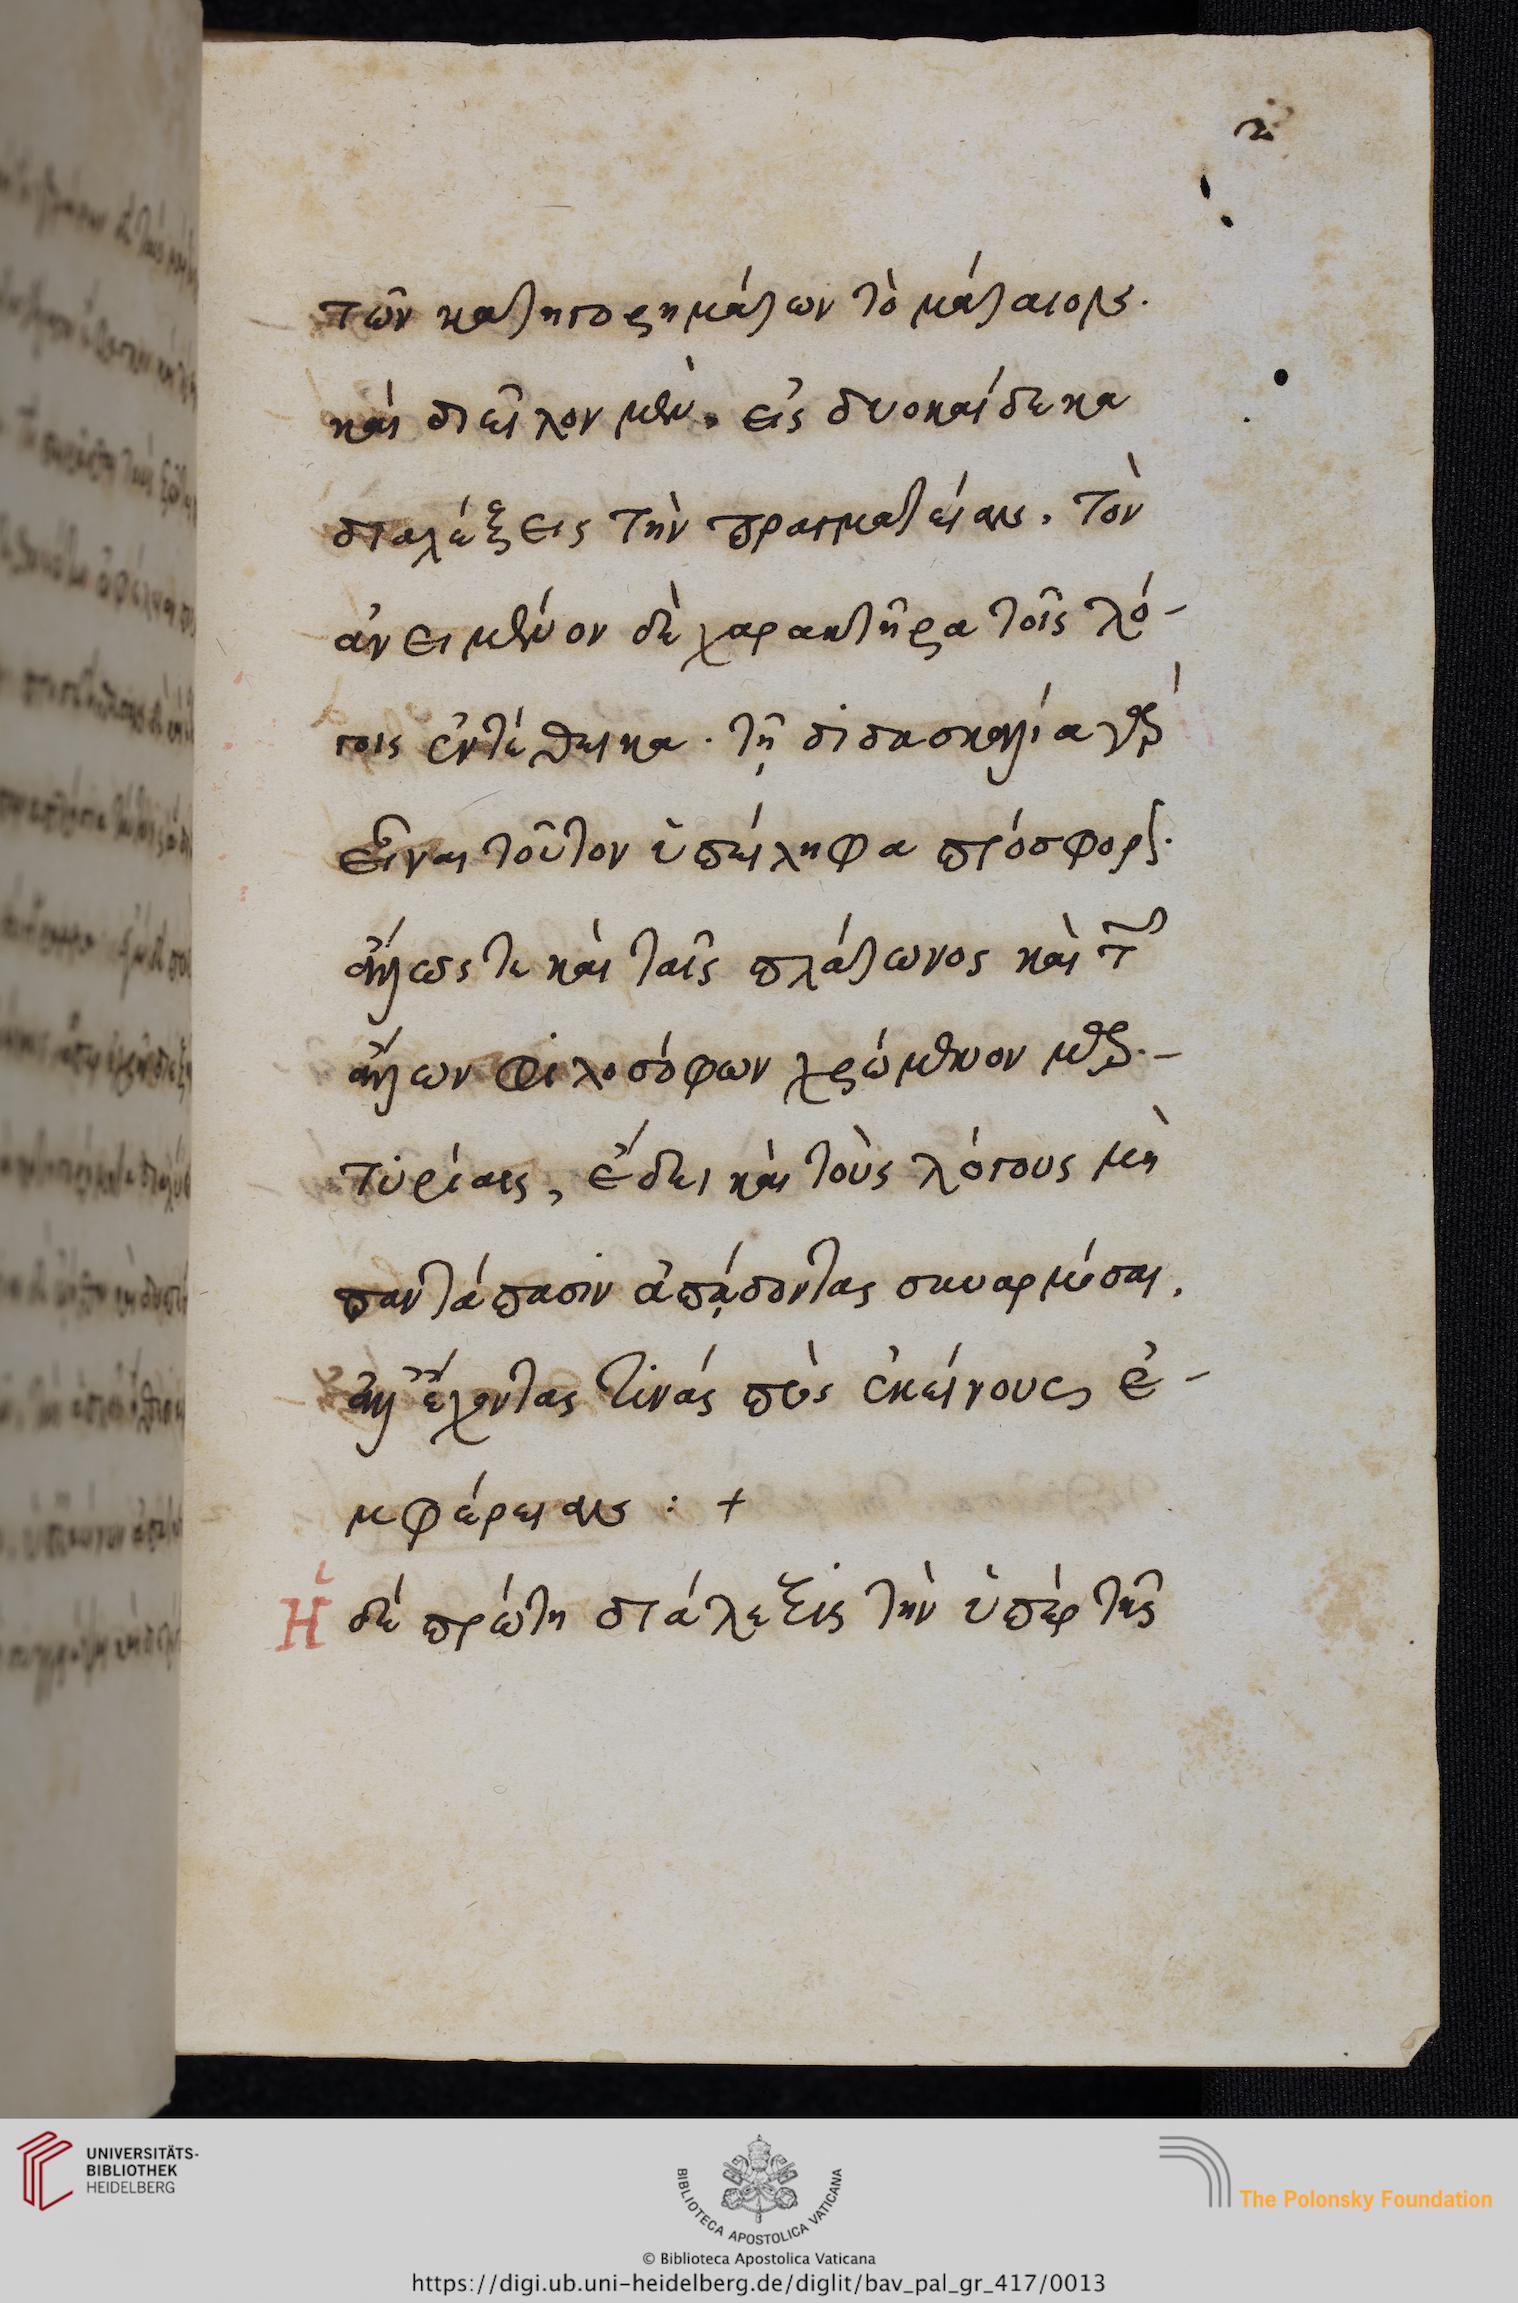 2
τῶν κατηγορημάτων τὸ μάταιον.
καὶ διεῖλον μὲν, εἰς δυοκαίδεκα
διαλέξεις τὴν πραγματείαν. τὸν
ἀνειμένον δὲ χαρακτῆρα τοῖς λό-
γοις ἐντέθεικα. τῇ διδασκαλία γὰρ
εἶναι τοῦτον ὑπείληφα πρόσφορον.
ἄλλως τε καὶ ταῖς πλάτωνος καὶ τῶν
ἄλλων φιλοσόφων χρώμενον μαρ-
τυρίαις, ἔδει καὶ τοὺς λόγους μὴ
παντάπασιν ἀπᾴδοντας συναρμόσαι,
ἀλλ' ἔχοντας τινάς πρὸς ἐκείνους ἐ-
μφέρειαν : +
Ἡ δέ πρώτη διάλεξις τὴν ὑπὲρ τῆς
UNIVERSITÄTS-
BIBLIOTHEK
HEIDELBERG
BIBLIOTECA APOSTOLICA VATICANA
The Polonsky Foundation
© Biblioteca Apostolica Vaticana
https://digi.ub.uni-heidelberg.de/diglit/bav_pal_gr_417/0013